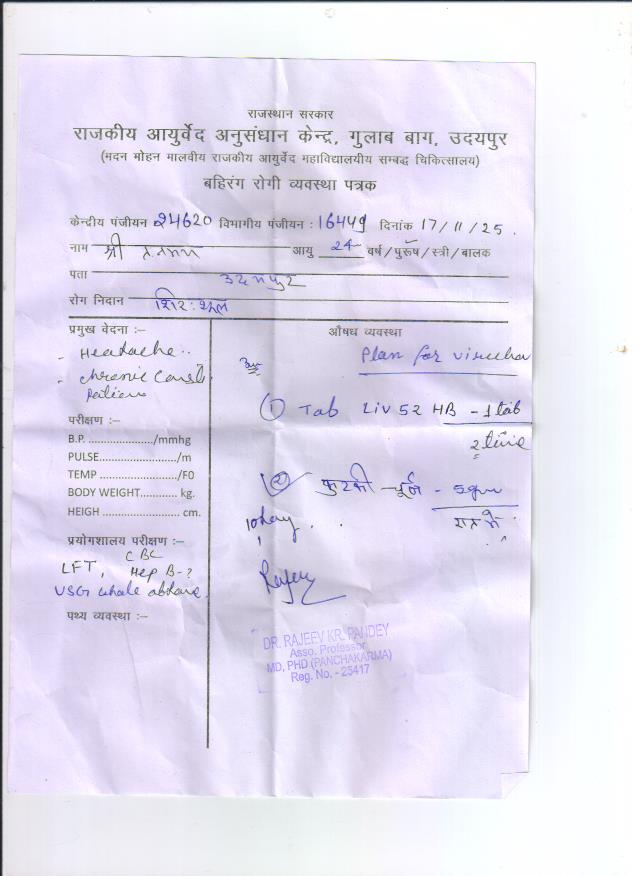 राजस्थान सरकार
राजकीय आयुर्वेद अनुसंधान केन्द्र, गुलाब बाग, उदयपुर
(मदन मोहन मालवीय राजकीय आयुर्वेद महाविद्यालयीय सम्बद्ध चिकित्सालय)
बहिरंग रोगी व्यवस्था पत्रक
केन्द्रीय पंजीयन 24620 विभागीय पंजीयन : 16449 दिनांक 17/11/25.
नाम श्री आयु 24 वर्ष/पुरूष/स्त्री/बालक
पता उदयपुर
रोग निदान शिरःशूल
प्रमुख वेदना :-
- Headache
- Chronic
औषध व्यवस्था
Plan for
① Tab Liv 52 HB - 1 tab
2 time
② कुटकी चूर्ण - 5gm
10 day
परीक्षण :-
B.P. ....................../mmhg
PULSE........................../m
TEMP ........................../F0
BODY WEIGHT............ kg.
HEIGH .......................... cm.
प्रयोगशालय परीक्षण :-
CBC
LFT, Hep B-?
USG whole
पथ्य व्यवस्था :-
DR. RAJEEV KR. PANDEY
Asso. Professor
MD, PHD (PANCHAKARMA)
Reg. No. - 25417